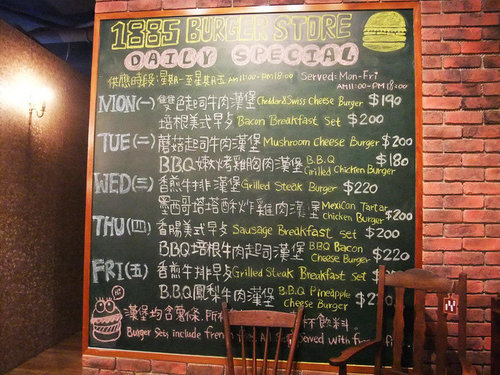 1885 BURGER STORE
DAILY SPECIAL
供應時段:星期一至星期五 AM11:00-PM18:00 Served: Mon-Fri AM11:00-PM18:00
MON(一) 雙色起司牛肉漢堡 Cheddar&Swiss Cheese Burger $190
培根美式早歺 Bacon Breakfast Set $200
TUE(二) 蘑菇起司牛肉漢堡 Mushroom Cheese Burger $200
B.B.Q 嫩烤雞胸肉漢堡 B.B.Q Grilled Chicken Burger $180
WED(三) 香煎牛排漢堡 Grilled Steak Burger $220
墨西哥塔塔酥炸雞肉漢堡 Mexican Tartar Chicken Burger $200
THU(四) 香腸美式早歺 Sausage Breakfast set $200
BBQ培根牛肉起司漢堡 BBQ Bacon Cheese Burger $220
FRI(五) 香煎牛排早歺 Grilled Steak Breakfast Set
B.B.Q鳳梨牛肉漢堡 B.B.Q Pineapple Cheese Burger
Hi
漢堡均含薯條 所 杯飲料
Burger Sets include fren All Served with